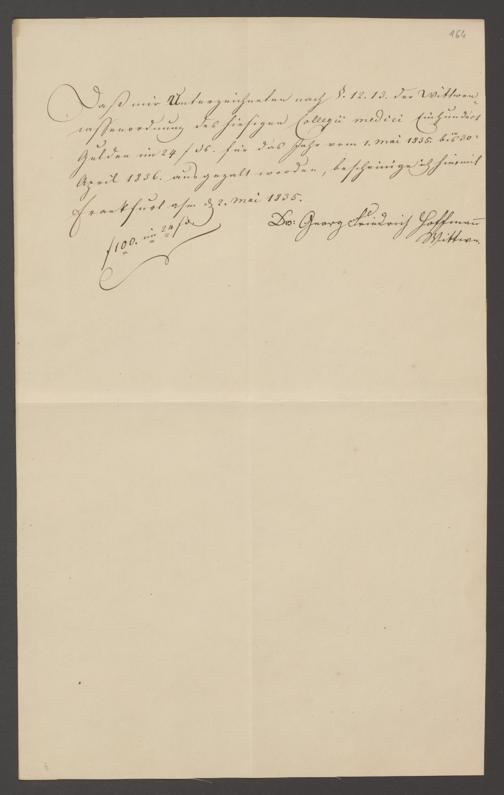 164
Daß mir Unterzeichneten nach §. 12. 13. der Wittwen-
cassenordnung des hiesigen Collegii medici Einhundert
Gulden im 24 f. Fs. für das Jahr vom 1. Mai 1835. bis 30.
April 1836. ausgezalt worden, bescheinige ich hiermit
Frankfurt a/m d. 2. Mai 1835.
Dr. Georg Friedrich Hoffmann
Wittwe.
f 100. im 24 f.